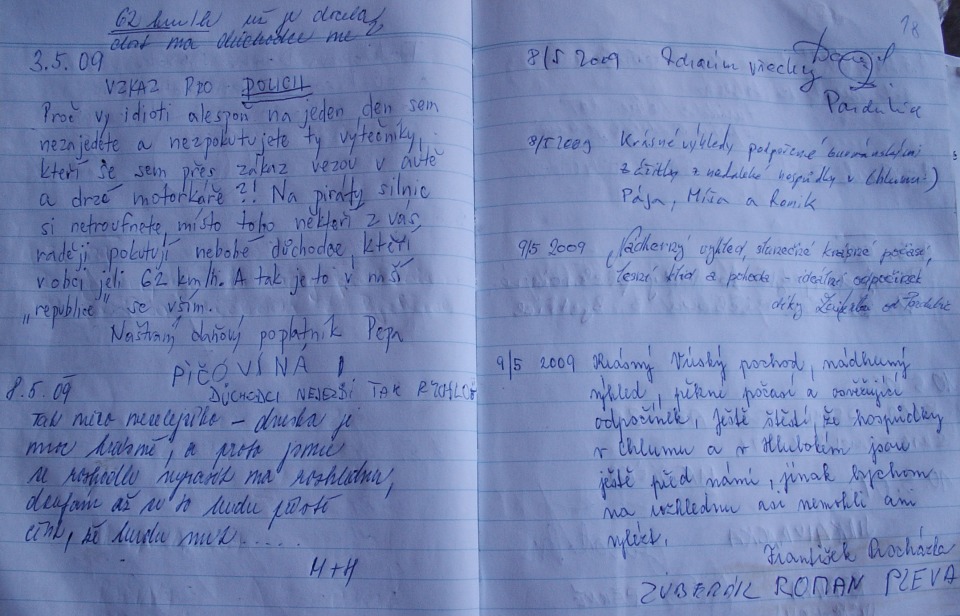 62 km/h už je dražba,
dost na důchodce ne!
3.5.09
VZKAZ PRO POLICII
Proč vy idioti alespoň na jeden den sem
nezajedete a nezpokutujete ty výtečníky,
kteří se sem přes zákaz vezou v autě
a drzé motorkáře ?! Na piráty silnic
si netroufnete, místo toho někteří z vás
raději pokutují nebohé důchodce, kteří
v obci jeli 62 km/h. A tak je to v naší
„republice" se vším.
Naštvaný daňový poplatník Pepa
PÍČOVINA !
DŮCHODCI NEJEZDÍ TAK RYCHLE
8.5.09
Tak mělo - dneska je
moc krásně, a proto jsme
se rozhodli na rozhlednu,
doufám až se to budu
číst, že budu
H+H
18
8/5 2009 Zdravím všecky
Pardubice
8/5 2009 Krásné výhledy podpořené
zážitky z nedaleké hospůdky v Chlumu :)
Pája, Míša a Romik
9/5 2009 Nádherný výhled, slunečné krásné počasí,
lesní klid a pohoda - ideální odpočinek
díky od Pardubic
9/5 2009 Krásný pochod, nádherný
výhled, pěkné počasí a osvěžující
odpočinek, ještě štěstí, že hospůdky
v Chlumu a v Hlubokém jsou
ještě před námi, jinak bychom
na rozhlednu asi nemohli ani
vylézt.
František Procházka
ZUBERÁK ROMAN PLEVA